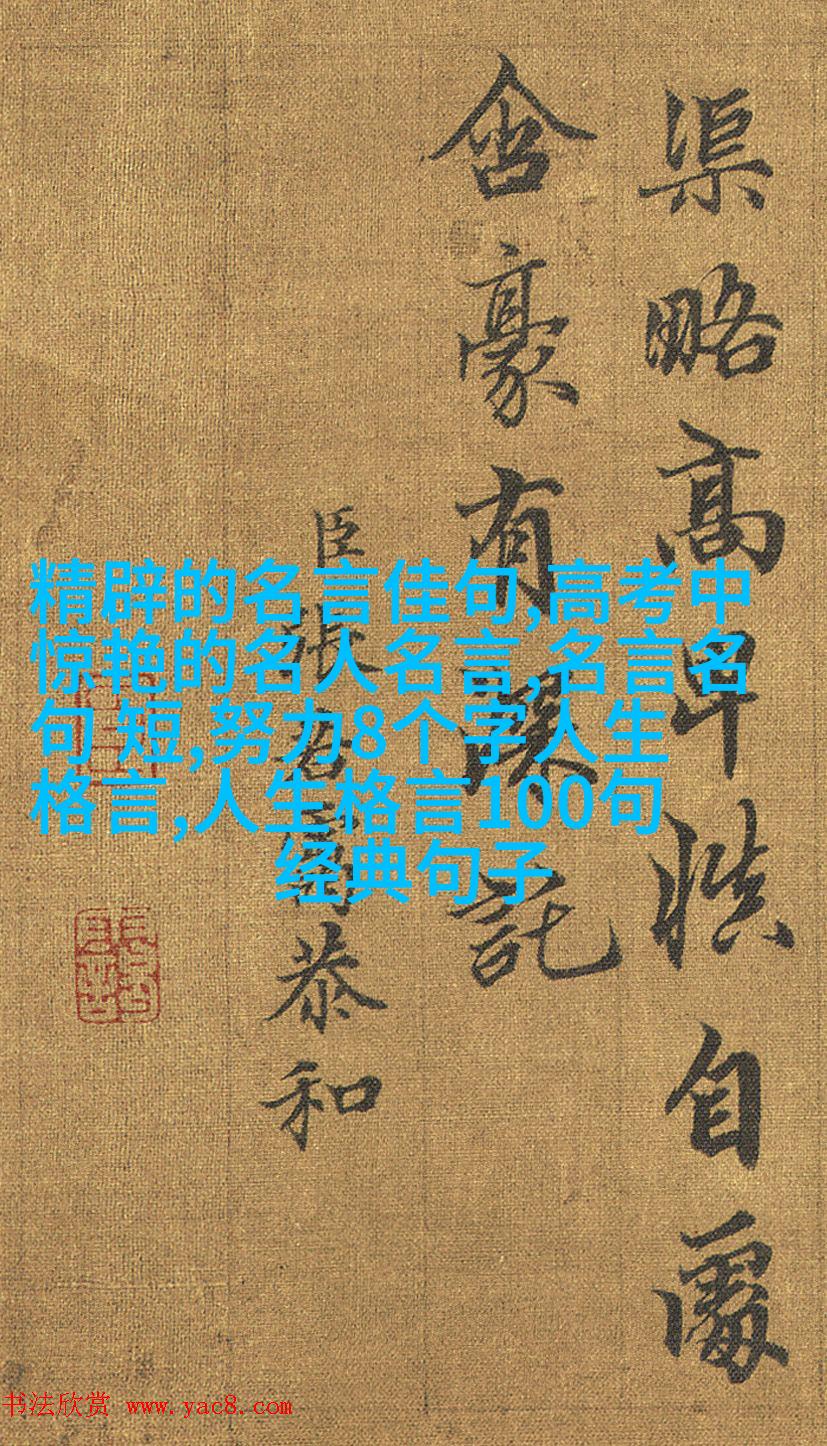 渠略高卑慎自處
含豪有託
臣張若恭和
精辟的名言佳句,高考中
惊艳的名人名言,名言名
句 短,努力8个字人生
格言,人生格言100句
经典句子
书法欣赏 www.yac8.com